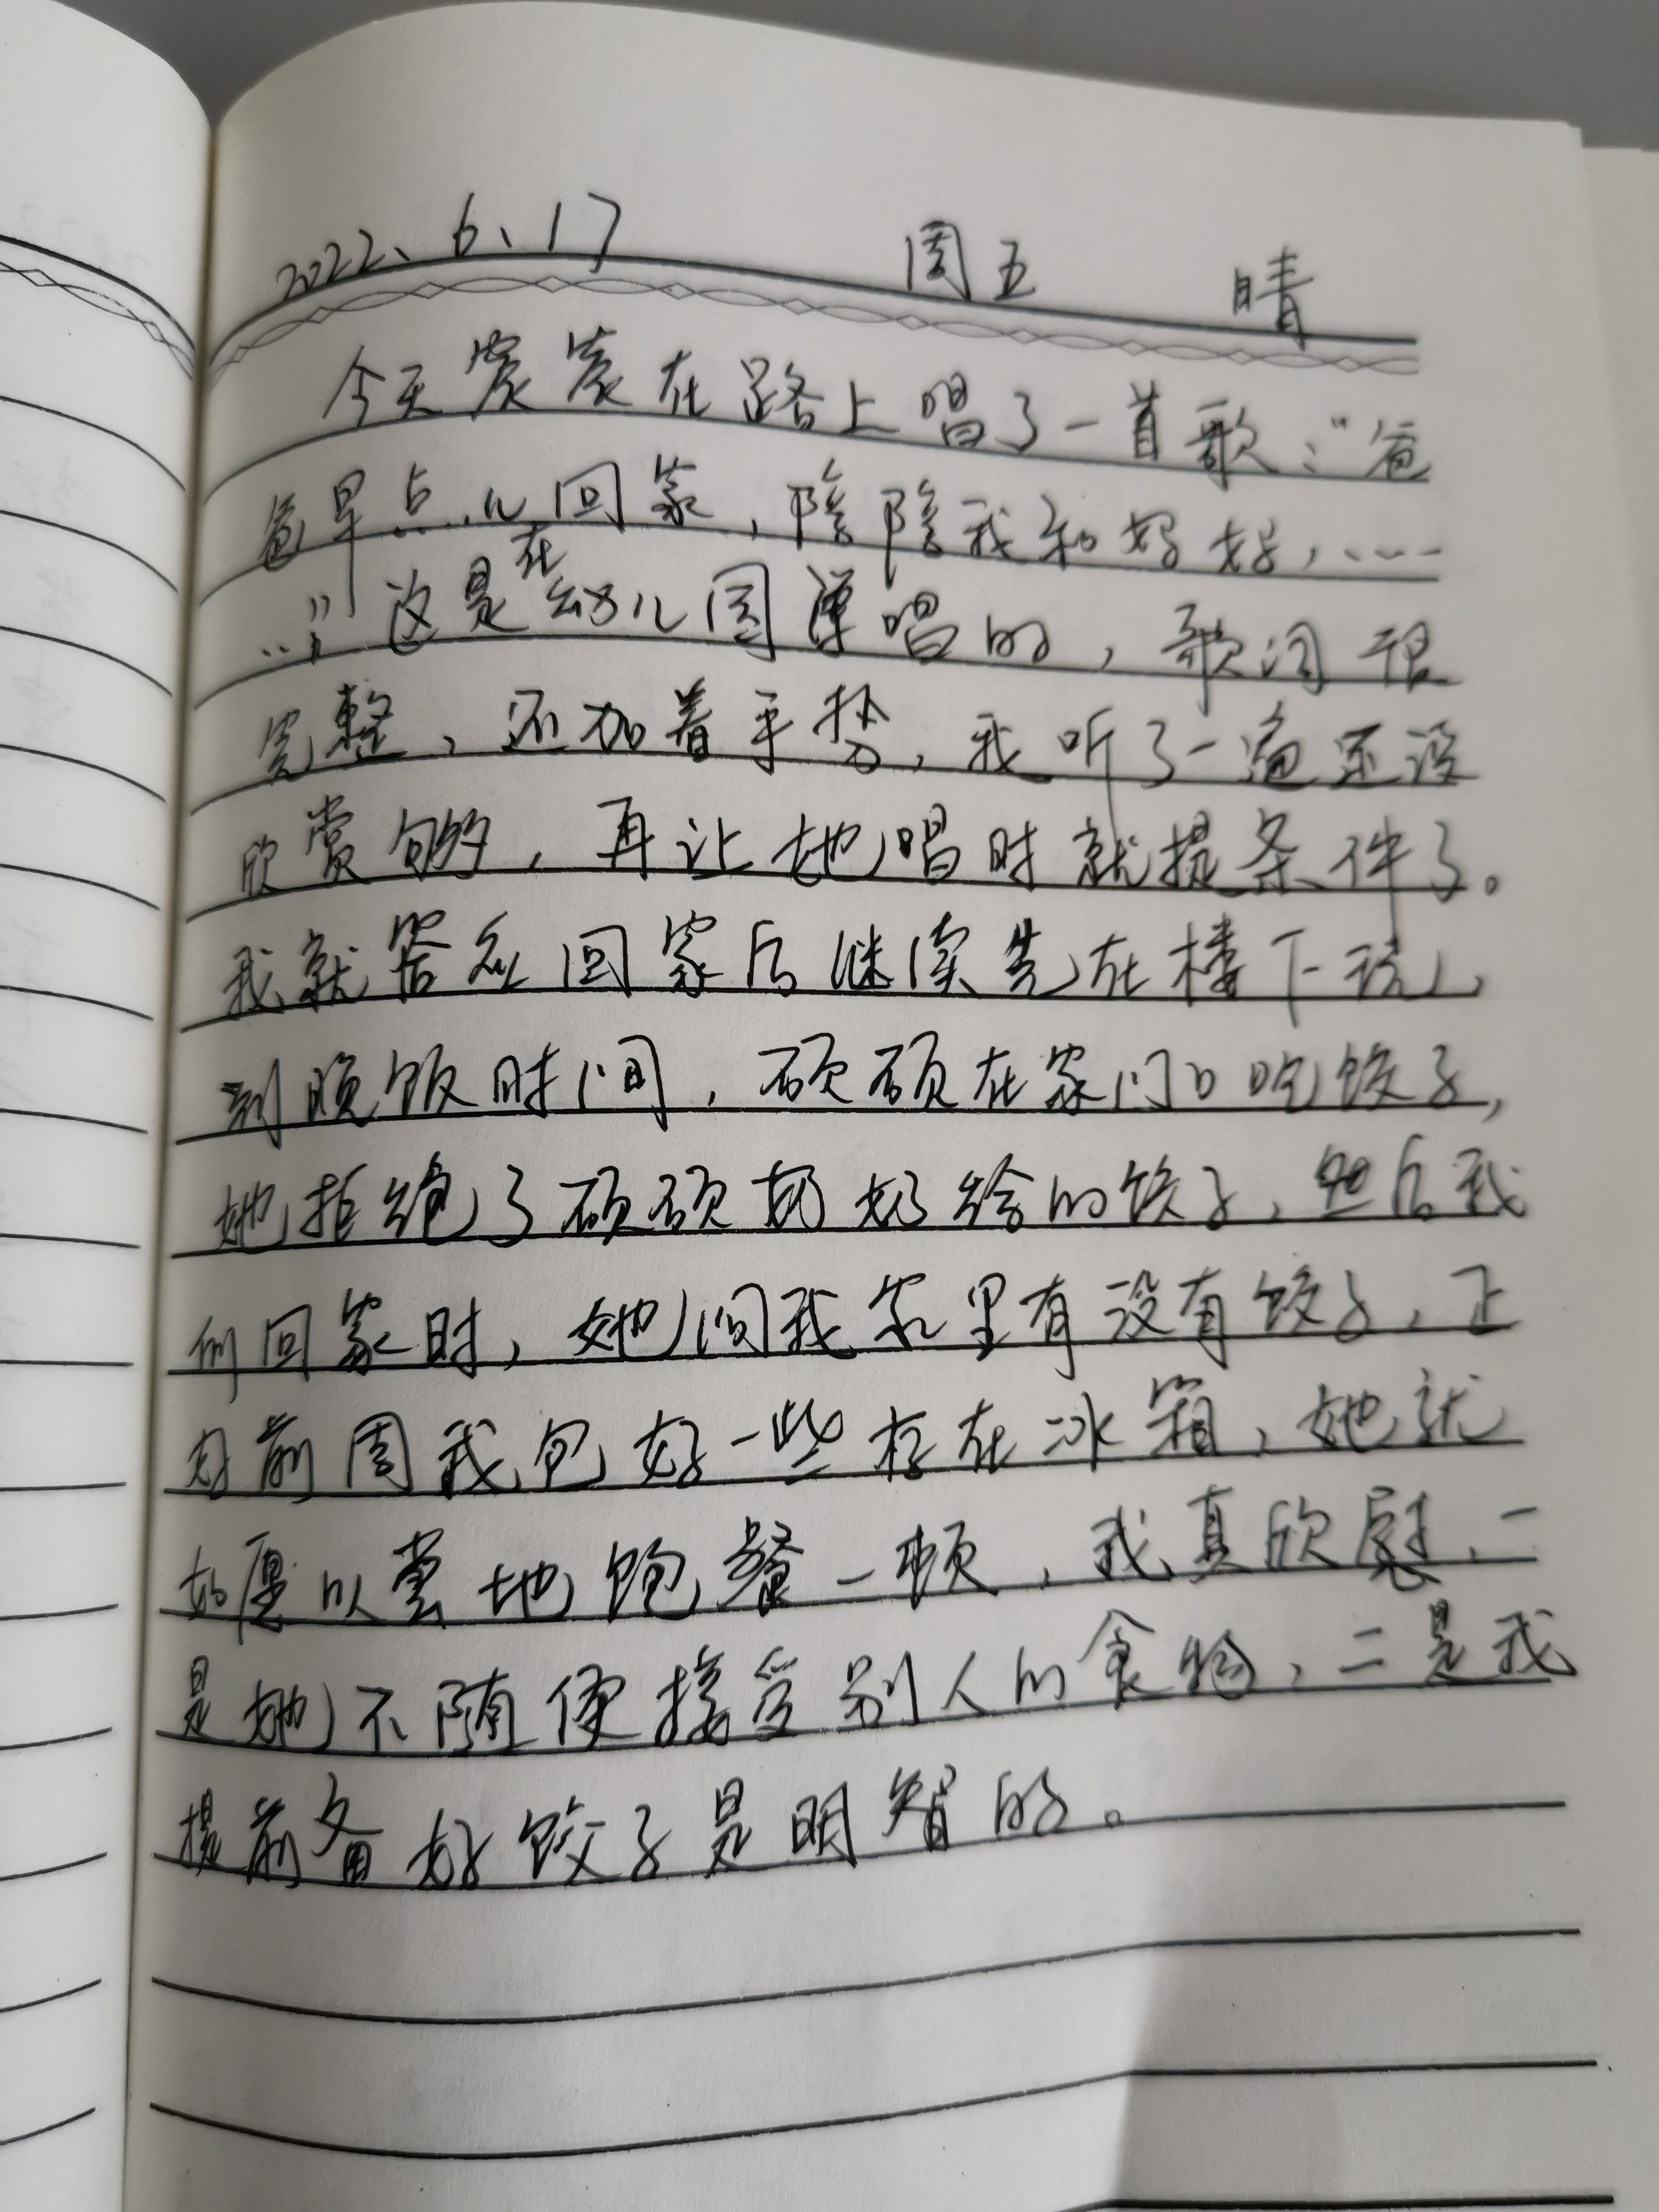 2022、6、17 周五 晴
今天宸宸在路上唱了一首歌：“爸
爸早点儿回家，陪陪我和妈妈，……
…”这是在幼儿园弹唱的，歌词很
完整，还加着手势，我听了一遍还没
欣赏够，再让她唱时就提条件了。
我就答应回家后继续先在楼下玩儿
到晚饭时间，硕硕在家门口吃饺子，
她拒绝了硕硕奶奶给的饺子，然后我
们回家时，她问我家里有没有饺子，正
好前周我包好一些存在冰箱，她就
如愿以尝地饱餐一顿，我真欣慰，一
是她不随便接受别人的食物，二是我
提前备好饺子是明智的。